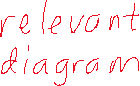 relevant
diagram